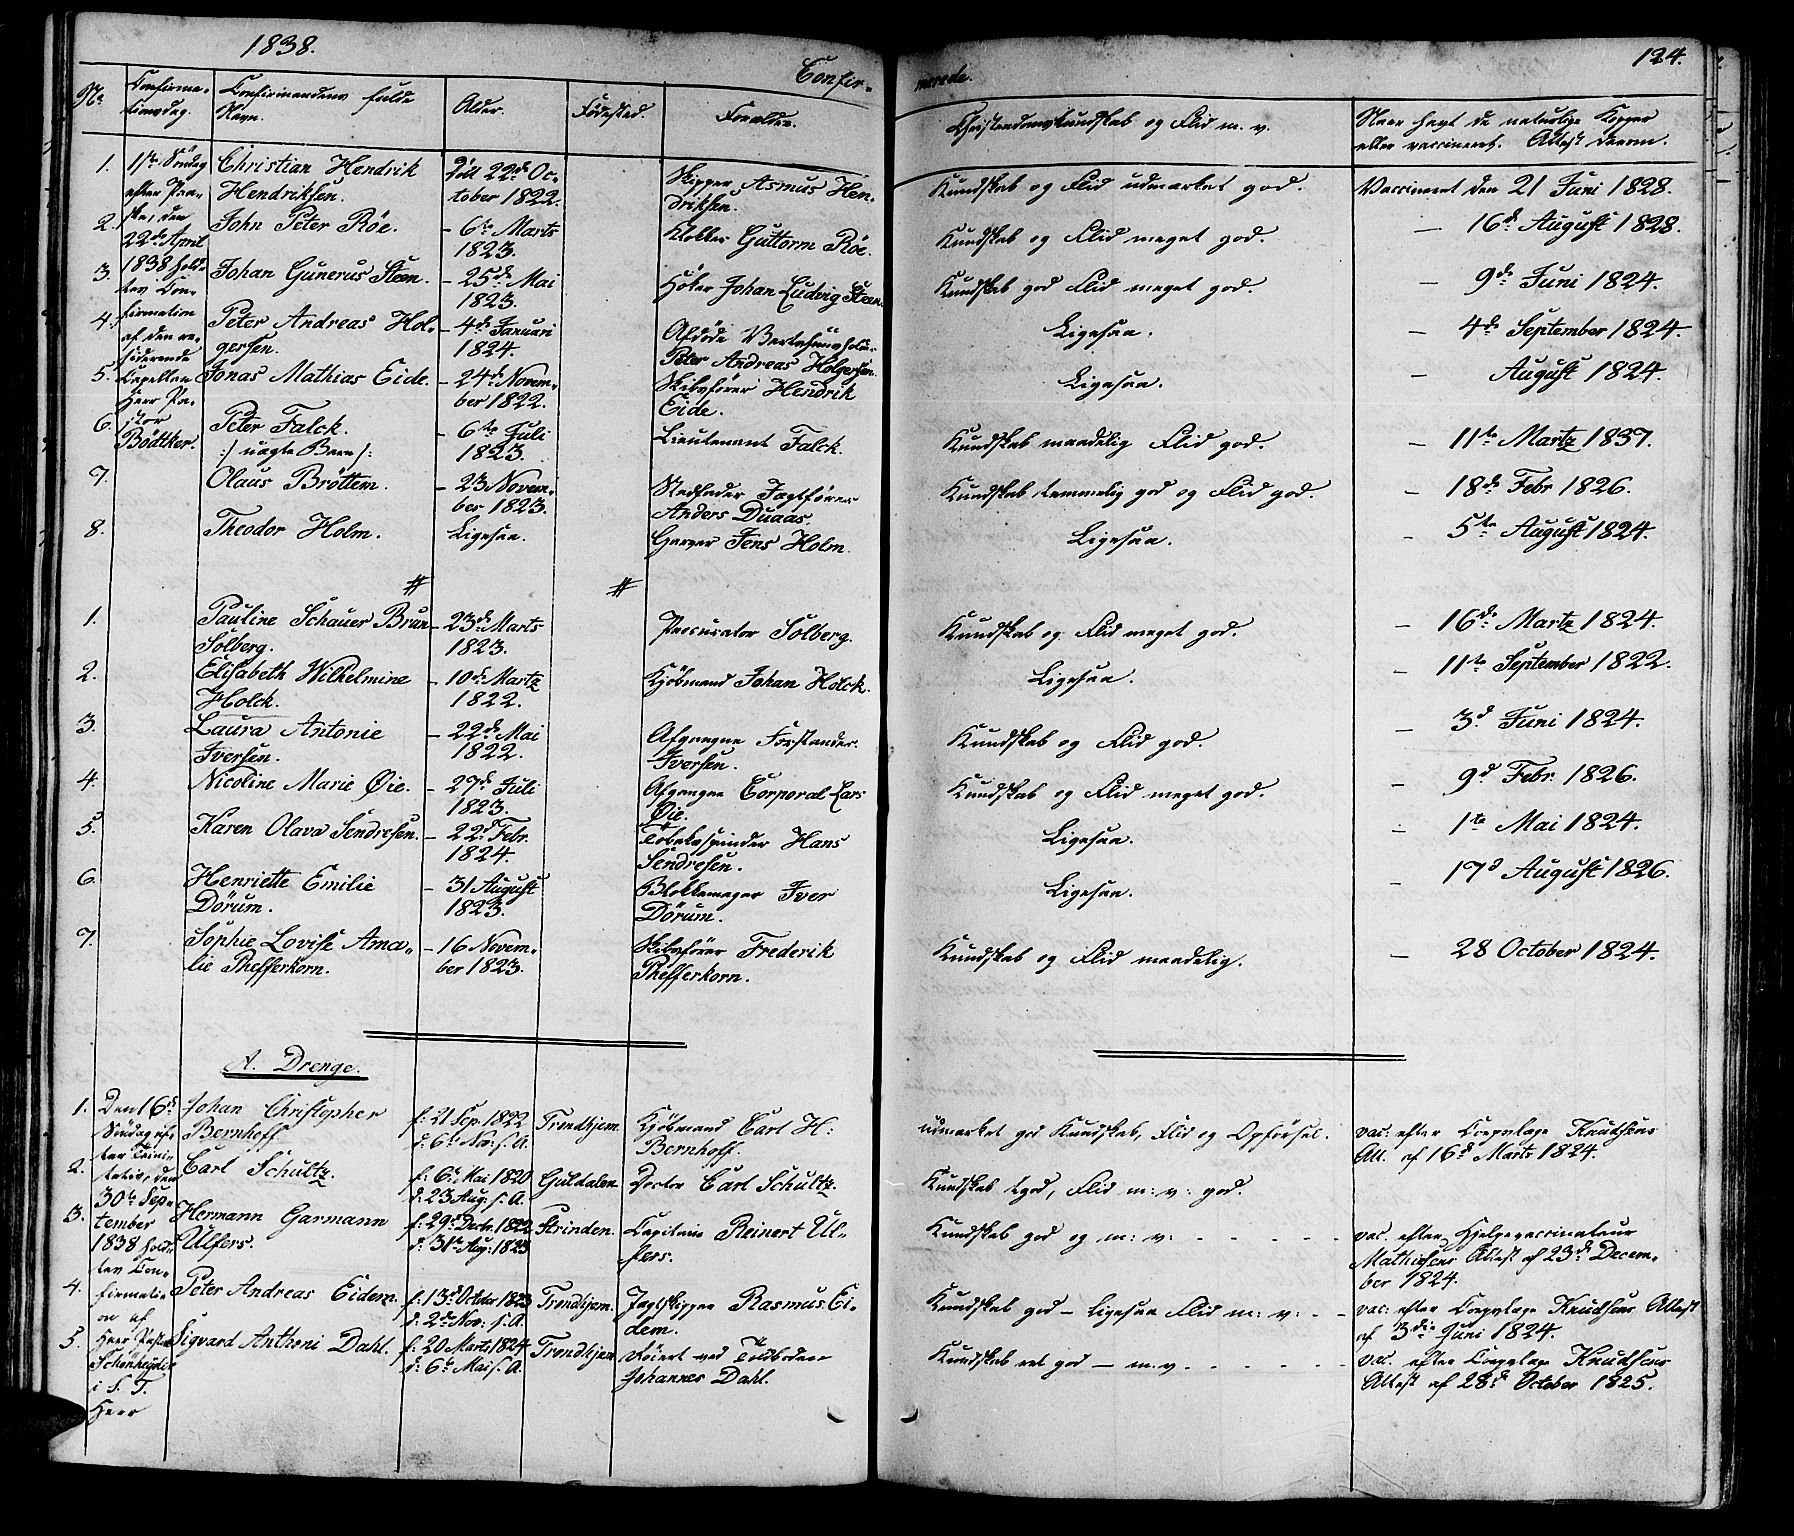 1838.
Confir-
merede.
124.
No
Confirma-
tionsdag.
Confirmandens fulde
Navn.
Alder.
Fødested.
Forældre.
Christendomskundskab og Flid m. v.
Naar havt de naturlige Kopper
eller vaccineret. Attest derom.
1.
1ste Søndag
efter Paa-
ske, den
22de April
1838 hold-
tes Con-
firmation
af den re-
siderende
Capellan
Herr Pa-
stor
Bødtker.
Christian Hendrik
Hendriksen.
født 22de Oc-
tober 1822.
Skipper Asmus Hen-
driksen.
Kundskab og Flid udmærket god.
Vaccineret den 21 Juni 1828.
2.
John Peter Röe.
- 6te Marts
1823.
Klokker Guttorm Röe.
Kundskab og Flid meget god.
— 16de August 1828.
3.
Johan Gunerus Steen.
- 25de Mai
1823.
Høker Johan Ludvig Steen.
Kundskab god Flid meget god.
— 9de Juni 1824.
4.
Peter Andreas Hol-
gersen.
- 4de Januari
1824.
Afdøde Vertshuusholder
Peter Andreas Holgersen.
Ligesaa.
— 4de September 1824.
5.
Jonas Mathias Eide.
- 24de Novem-
ber 1822.
Skibsfører Hendrik
Eide.
Ligesaa.
— August 1824.
6.
Peter Falck.
:/ uægte Barn /:
- 6te Juli
1823.
Lieutenant Falck.
Kundskab maadelig Flid god.
— 11te Martz 1837.
7.
Olaus Bröttem.
- 23 Novem-
ber 1823.
Stedfader Jagtfører
Anders Duaas.
Kundskab temmelig god og Flid god.
— 18de Febr 1826.
8.
Theodor Holm.
Ligesaa.
Garver Jens Holm.
Ligesaa.
— 5te August 1824.
1.
Pauline Schauer Brun
Solberg.
- 23de Marts
1823.
Procurator Solberg.
Kundskab og Flid meget god.
— 16de Martz 1824.
2.
Elisabeth Wilhelmine
Holck.
- 10de Martz
1822.
Kjøbmand Johan Holck.
Ligesaa.
— 11te September 1822.
3.
Laura Antonie
Iversen.
- 22de Mai
1822.
Afgangne Forstander
Iversen.
Kundskab og Flid god.
— 3d Juni 1824.
4.
Nicoline Marie Øie.
- 27de Juli
1823.
Afgangne Corporal Lars
Øie.
Kundskab og Flid meget god.
— 9d Febr. 1826.
5.
Karen Olava Sendresen.
- 22d Febr.
1824.
Tobakspinder Hans
Sendresen.
Ligesaa.
— 1te Mai 1824.
6.
Henriette Emilie
Dörum.
- 31 August
1823.
Blokkemager Iver
Dörum.
Ligesaa.
— 17d August 1826.
7.
Sophie Lovise Ama-
lie Phefferkorn.
- 16 Novem-
ber 1823.
Skibsfører Frederik
Phefferkorn.
Kundskab og Flid maadelig.
— 28 October 1824.
A. Drenge.
1.
Den 16de
Søndag ef-
ter Trini-
tatis, den
30te Sep-
tember
1838 hold-
tes Con-
firmati-
on af
Herr Pastor
Schønheyder
i S. T.
Herr
Johan Christopher
Bernhoff.
f: 21 Sep. 1822
d: 6te Nov: s. A.
Trondhjem.
Kjøbmand Carl H:
Bernhoff.
udmærket god Kundskab, Flid og Opførsel.
vac: efter Corpslæge Knudsens
Att. af 16d Marts 1824.
2.
Carl Schultz.
f: 6te Mai 1820
d: 23 Aug: s. A.
Guldalen.
Doctor Carl Schultz.
Kundskab tgod, Flid m: v: god.
3.
Hermann Garmann
Ulfers.
f: 29de Decbr. 1822
d: 31te Aug: 1823
Strinden.
Capitain Reinert Ul-
fers.
Kundskab god og m: v: - - - - -
vac. efter Hjelpevaccinateur
Mathisens Attest af 23de Decem-
ber 1824.
4.
Peter Andreas Eidem.
f: 13de October 1823
d: 2de Nov: s. A.
Trondhjem.
Jagtskipper Rasmus Ei-
dem.
Kundskab god — Ligesaa Flid m: v: - -
vac: efter Corpslæge Knudsens Attest
af 3die Juni 1824.
5.
Sigvard Anthoni Dahl.
f: 20 Marts 1824
d: 6te Mai s. A.
Trondhjem
Røiert ved Toldboden
Johannes Dahl.
Kundskab ret god — m. v. - - - - -
vac. efter Corpslæge Knudsens
Attest af 28de October 1825.